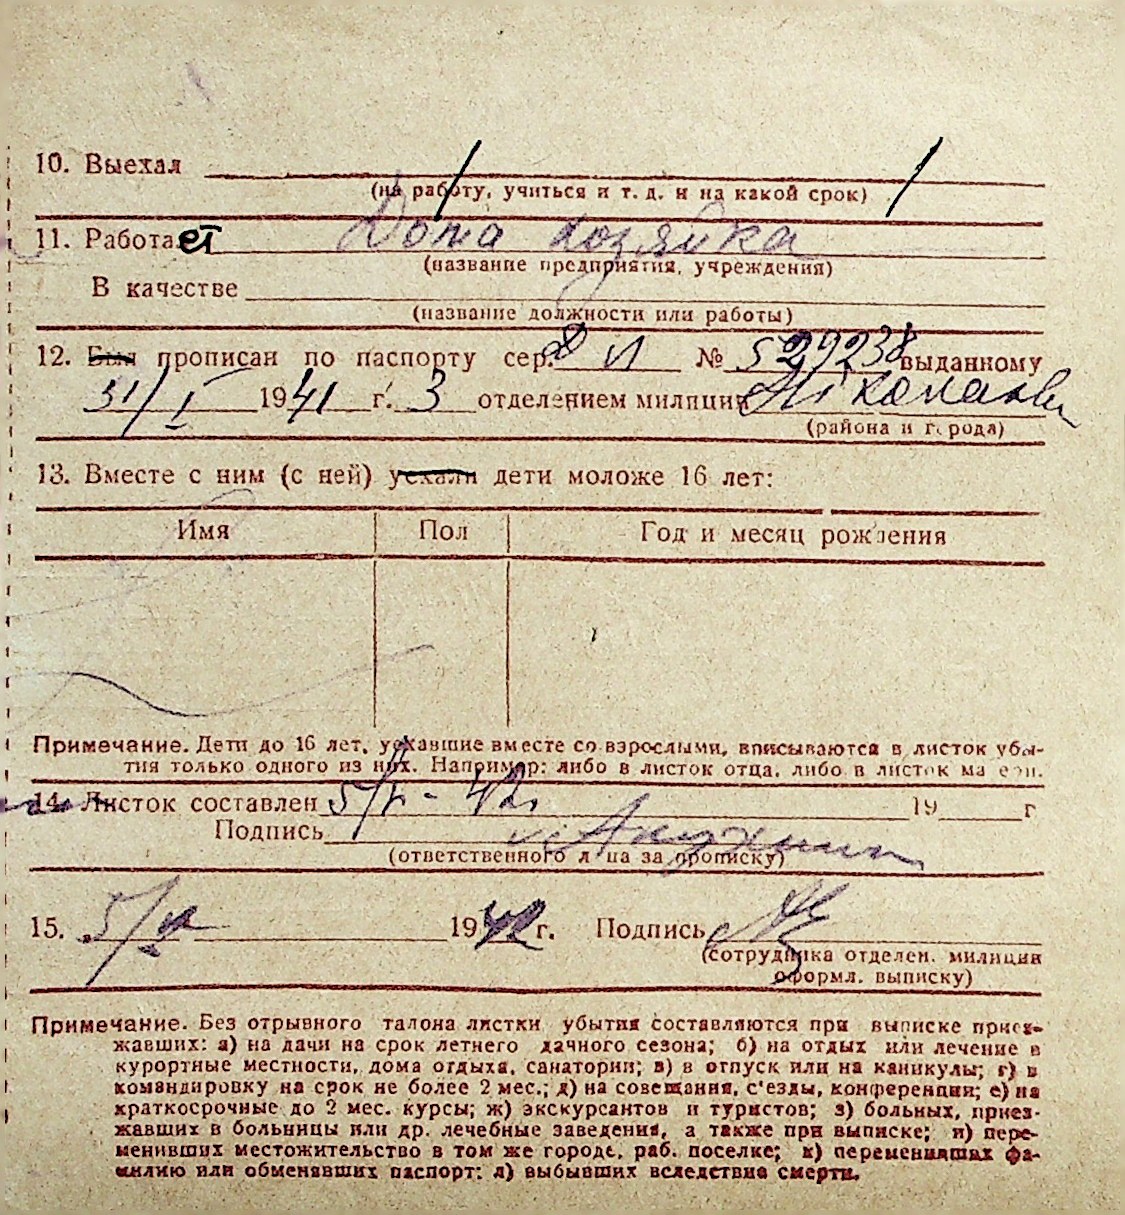 10. Выехал
(на работу, учиться и т. д. и на какой срок)
11. Работает Дома хозяйка
(название предприятия, учреждения)
В качестве
(название должности или работы)
12. Был прописан по паспорту сер. № 529238 выданному
31/I 1941 г. 3 отделением милиции
(района и города)
13. Вместе с ним (с ней) уехали дети моложе 16 лет:
Имя Пол Год и месяц рождения
Примечание. Дети до 16 лет, уехавшие вместе со взрослыми, вписываются в листок убы-
тия только одного из них. Например: либо в листок отца, либо в листок матери.
14. Листок составлен 19 г
Подпись
(ответственного лица за прописку)
15. 1942 г. Подпись
(сотрудника отделен. милиции
оформл. выписку)
Примечание. Без отрывного талона листки убытия составляются при выписке приез-
жавших: а) на дачи на срок летнего дачного сезона; б) на отдых или лечение в
курортные местности, дома отдыха, санатории; в) в отпуск или на каникулы; г) в
командировку на срок не более 2 мес.; д) на совещания, с'езды, конференции; е) на
краткосрочные до 2 мес. курсы; ж) экскурсантов и туристов; з) больных, приез-
жавших в больницы или др. лечебные заведения, а также при выписке; и) пере-
менивших местожительство в том же городе, раб. поселке; к) переменивших фа-
милию или обменявших паспорт; л) выбывших вследствие смерти.